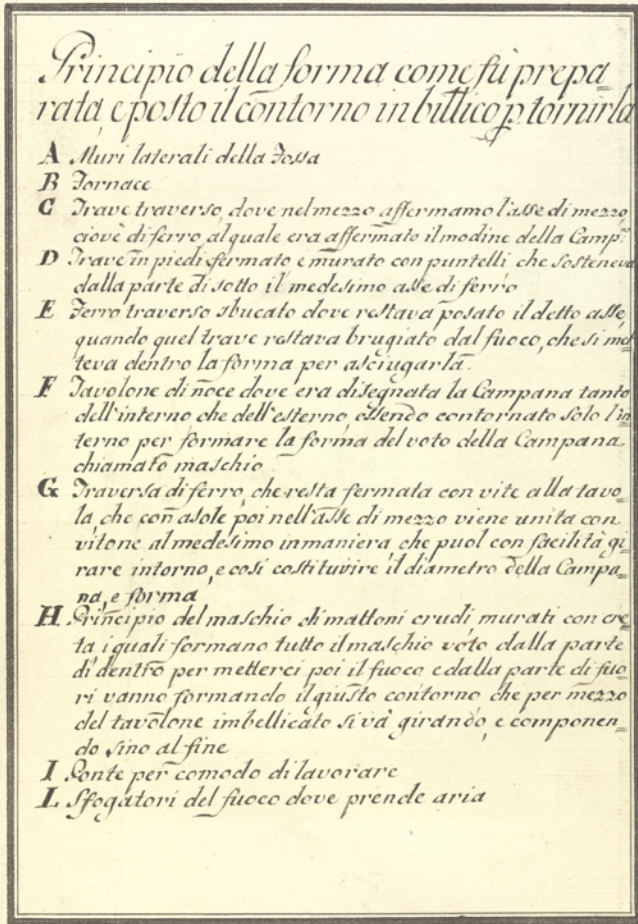 Principio della forma come fù prepa=
rata, e posto il contorno in billico p. tornirla
A Muri laterali della Fossa
B Fornace
C Trave traverso, dove nel mezzo affermamo l'asse di mezzo,
ciové di ferro, al quale era affermato il modine della Camp.ª
D Trave in piedi fermato e murato con puntelli che sosteneva
dalla parte di sotto il medesimo asse di ferro
E Ferro traverso sbucato dove restava posato il detto asse,
quando quel trave restava brugiato dal fuoco, che si met=
teva dentro la forma per asciugarla.
F Tavolone di noce dove era disegnata la Campana tanto
dell'interno che dell'esterno, essendo contornato solo l'in=
terno per formare la forma del voto della Campana
chiamato maschio
G Traversa di ferro, che resta fermata con vite alla tavo=
la, che con asole poi nell'asse di mezzo viene unita con
vitone al medesimo in maniera, che puol con facilità gi=
rare intorno, e così costituvire il diametro della Campa=
na, e forma
H Principio del maschio di mattoni crudi murati con cre=
ta i quali formano tutto il maschio vóto dalla parte
di dentro per metterci poi il fuoco e dalla parte di fuo=
ri vanno formando il giusto contorno, che per mezzo
del tavolone imbellicato si và girando, e componen=
do sino al fine
I Ponte per comodo di lavorare
L Sfogatori del fuoco dove prende aria